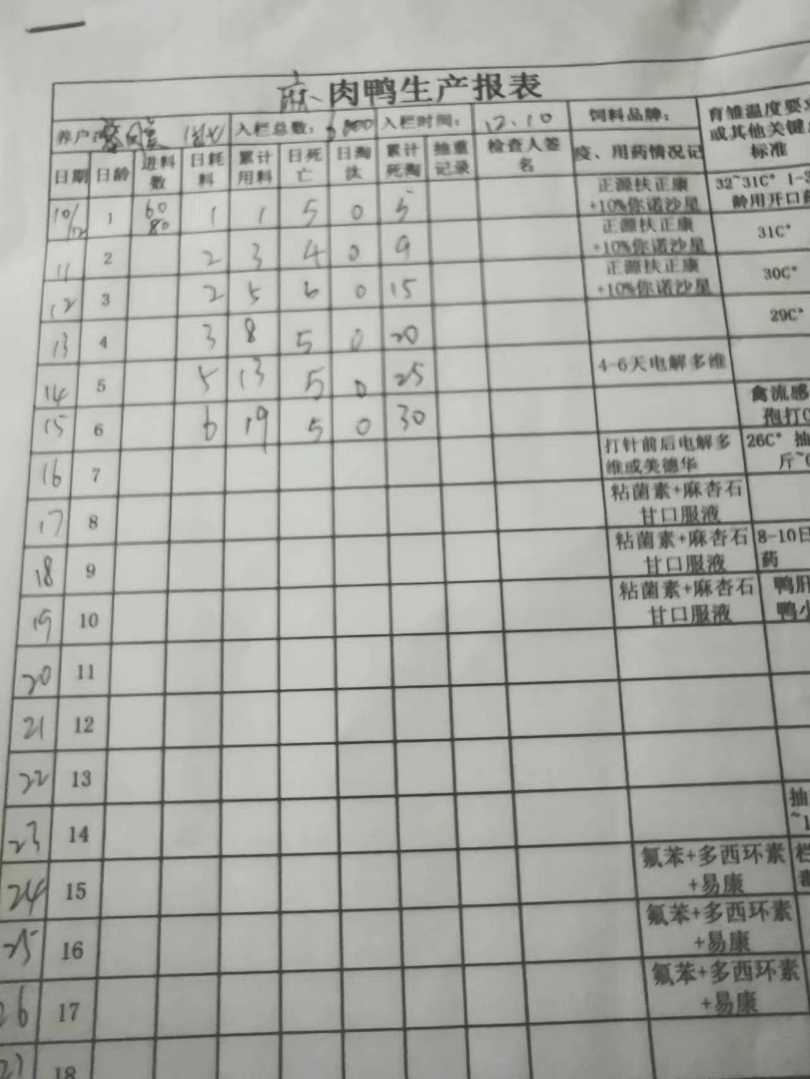 麻 肉鸭生产报表
养户: 入栏总数: 000 入栏时间: 12.10 饲料品牌: 育雏温度要求
或其他关键
标准
日期 日龄 进料数 日耗料 累计用料 日死亡 日淘汰 累计死淘 抽重记录 检查人签名 疫、用药情况记
10/12 1 60 80 1 1 5 0 5 正源扶正康+10%你诺沙星 32~31C° 1-3 龄用开口药
11 2 2 3 4 0 9 正源扶正康+10%你诺沙星 31C°
12 3 2 5 6 0 15 正源扶正康+10%你诺沙星 30C°
13 4 3 8 5 0 20 29C°
14 5 5 13 5 0 25 4-6天电解多维
15 6 6 19 5 0 30 禽流感 孢打
16 7 打针前后电解多维或美德华 26C° 抽 斤~
17 8 粘菌素+麻杏石甘口服液
18 9 粘菌素+麻杏石甘口服液 8-10日 药
19 10 粘菌素+麻杏石甘口服液 鸭肝 鸭小
20 11
21 12
22 13
23 14 抽 ~1
24 15 氟苯+多西环素+易康
25 16 氟苯+多西环素+易康
26 17 氟苯+多西环素+易康
27 18